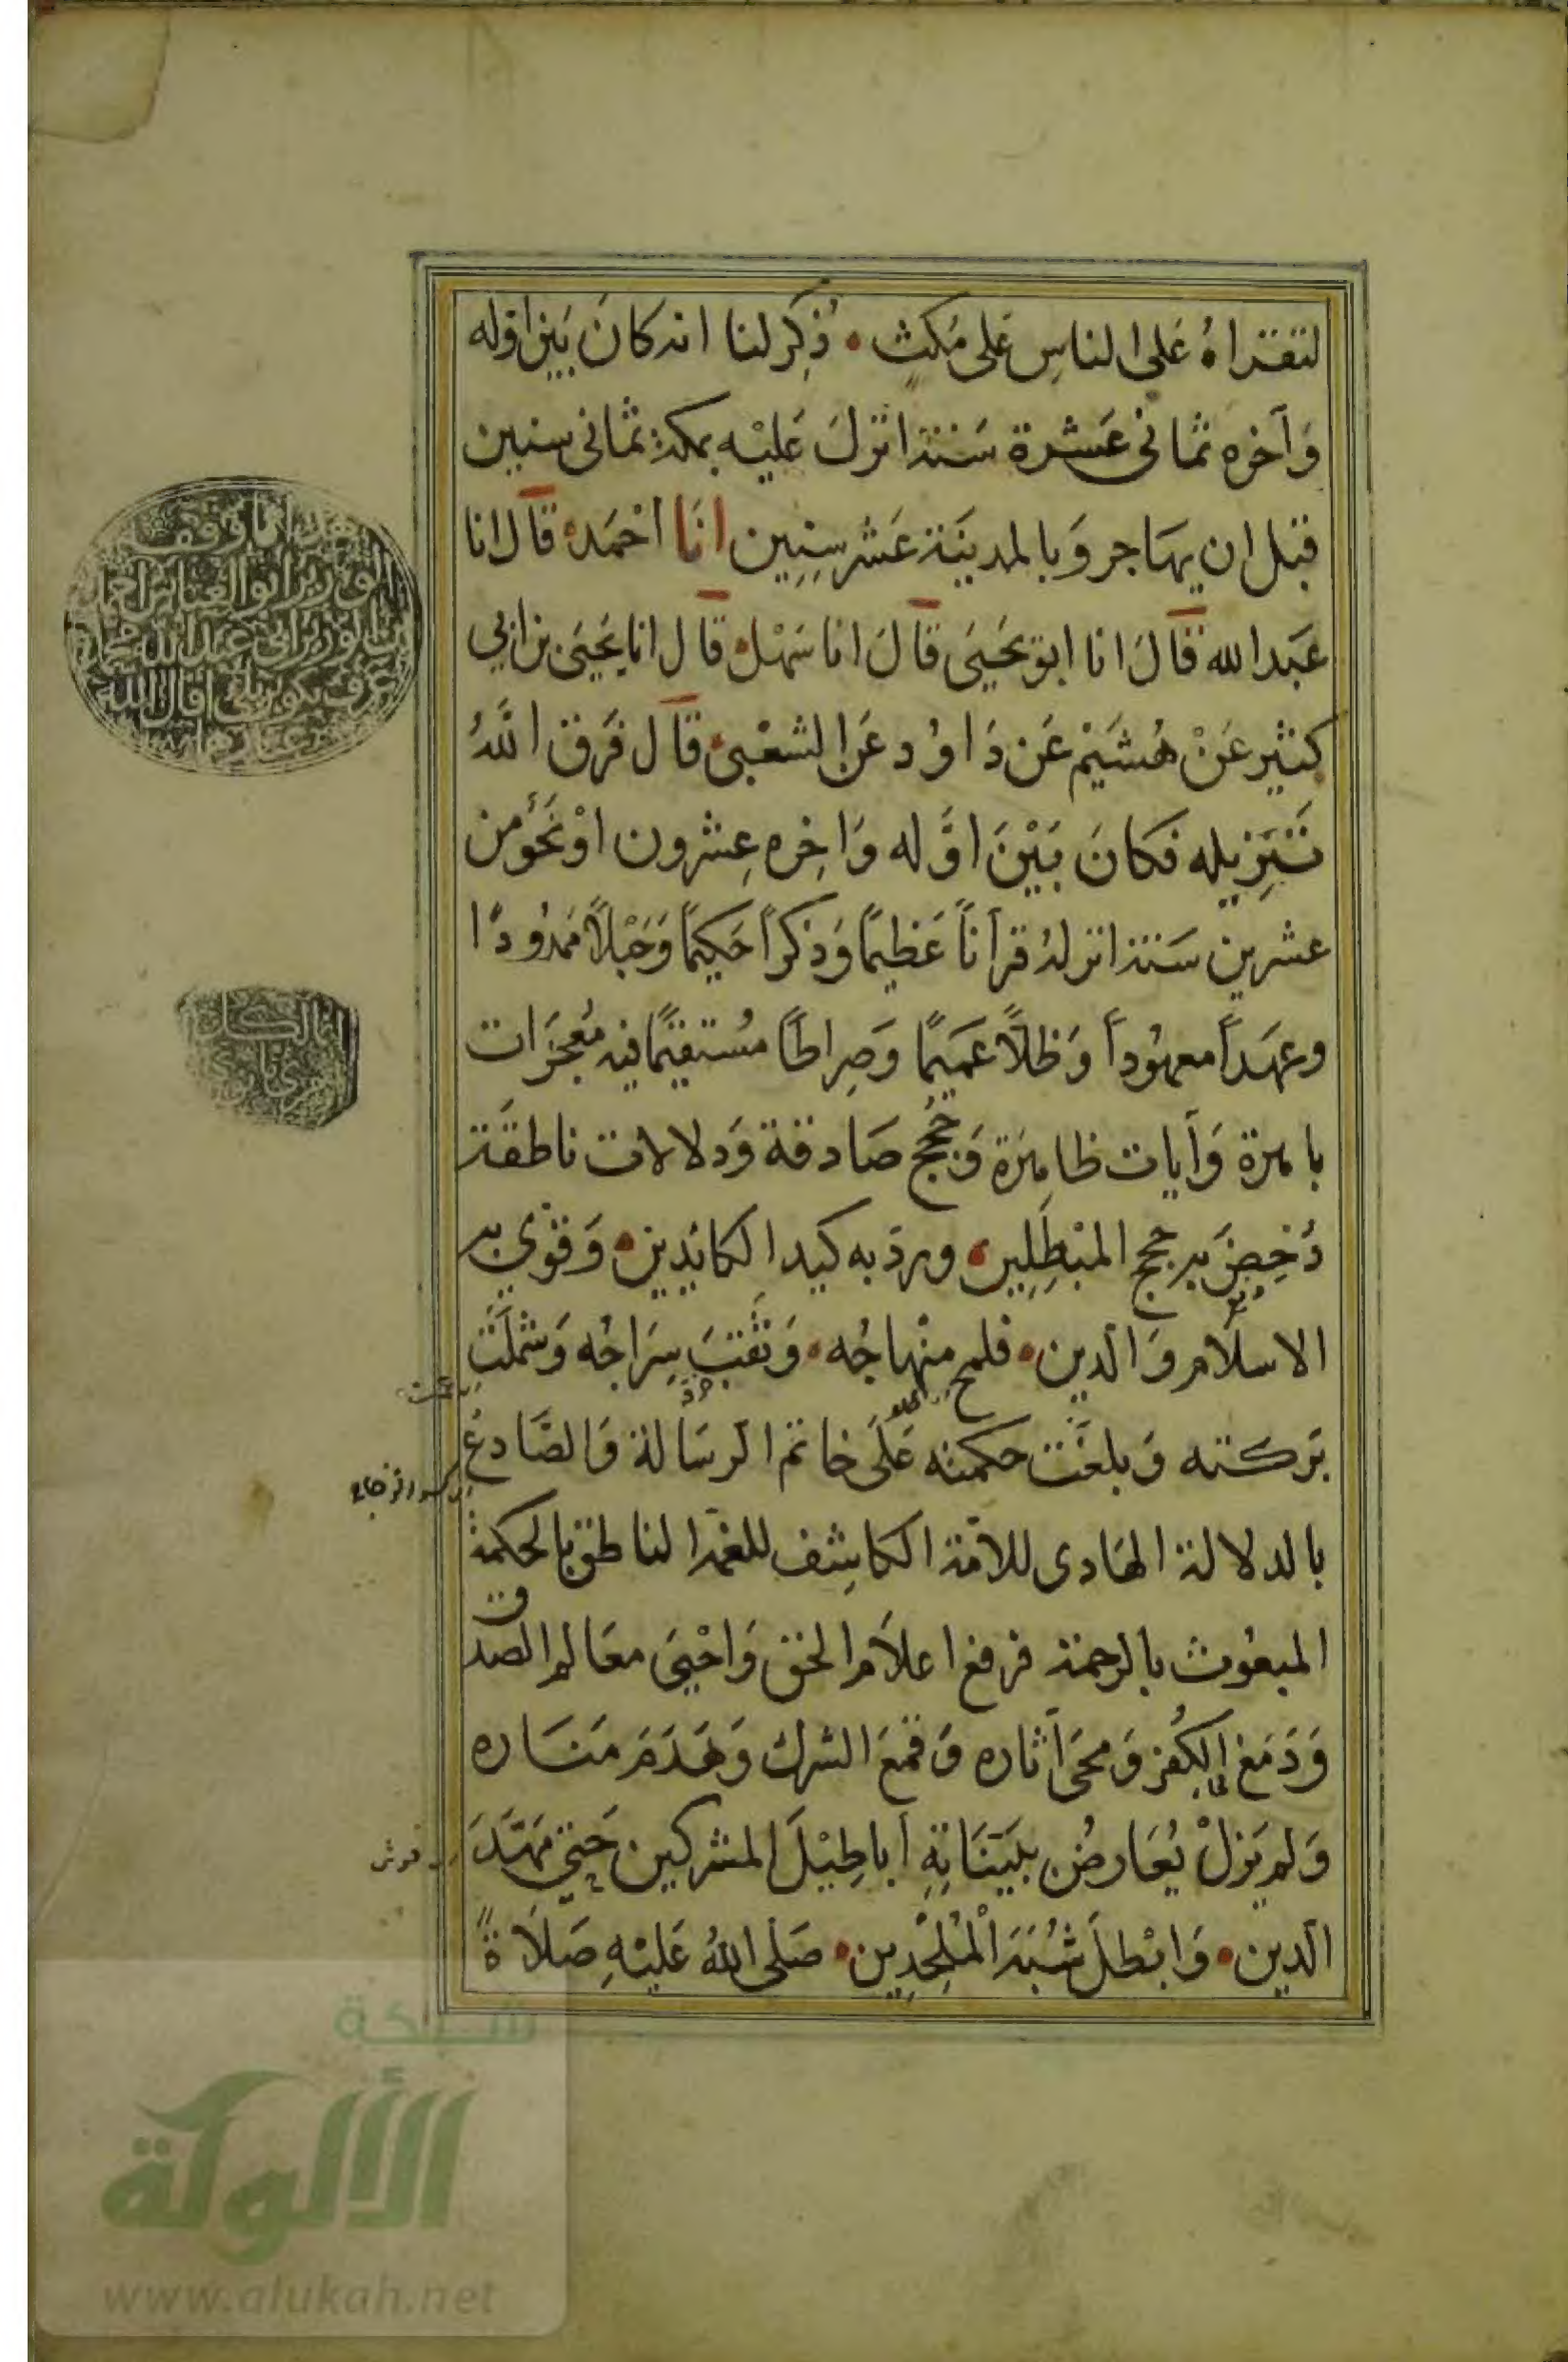 لتقراهُ عَلى الناسِ عَلى مُكثٍ ۰ ذُكِرَ لنا انه كانَ بَين اوله
وَآخره ثمانى عَشرة سَنة انزلَ عَليْه بمكة ثمانى سنين
قبل ان يهَاجر وَبالمدينَة عَشر سِنِين انَا احْمَد قَالَ انا
عَبد الله قَالَ انا ابو يحَيَى قَالَ انا سَهْل قَالَ انا يحَيَى بن ابي
كثير عَنْ هُشَيْم عَن دَاوُد عَن الشعْبى قَال فَرَق اللَّهُ
تَنزِيله فكانَ بَيْنَ اوَّله وَاخِره عِشرون اوْ نَحْو من
عشرين سَنة انزلهُ قرآناً عَظيمًا وَذكراً حَكيمًا وَحَبْلاً مَمدُودًا
وعهَداً معهوُداً وَظلاً عَميمًا وَصِراطًا مُستقيمًا فيه مُعجزَات
باهرة وَآيات ظاهِرَة وَحُجج صَادقة وَدلالات ناطقَة
دُحِضَ به حجج المبْطِلِين ۰ ورد به كيد الكائِدِين ۰ وَقوّي به
الاسلَام وَالدين ۰ فلمح مِنْهاجُه ۰ وَثقبَ سِرَاجُه وَشمْلَتْ
بَركته وَبلغَت حكمته عَلَى خاتم الرسَالة وَالصَّادعُ
بالدلالة الهَادى للامّة الكاشِف للغمة الناطق بالحكمة
المبعُوث بالرحمة فرفع اعلاَم الحق وَاحْيَى معَالم الصدق
وَدَمَغ الكُفر وَمحىَ آثاره وَقمعَ الشرك وَهَدَمَ مَنَاره
وَلم يَزلْ يُعَارضُ بِبَيّنَاتِهِ اَباطِيْلَ المشركين حَتى مهّدَ
الدين ۰ وَابْطلَ شُبَهَ الْمُلْحِدِين ۰ صَلى اللهُ عَليْهِ صَلَاةً
شبكة
الألوكة
www.alukah.net